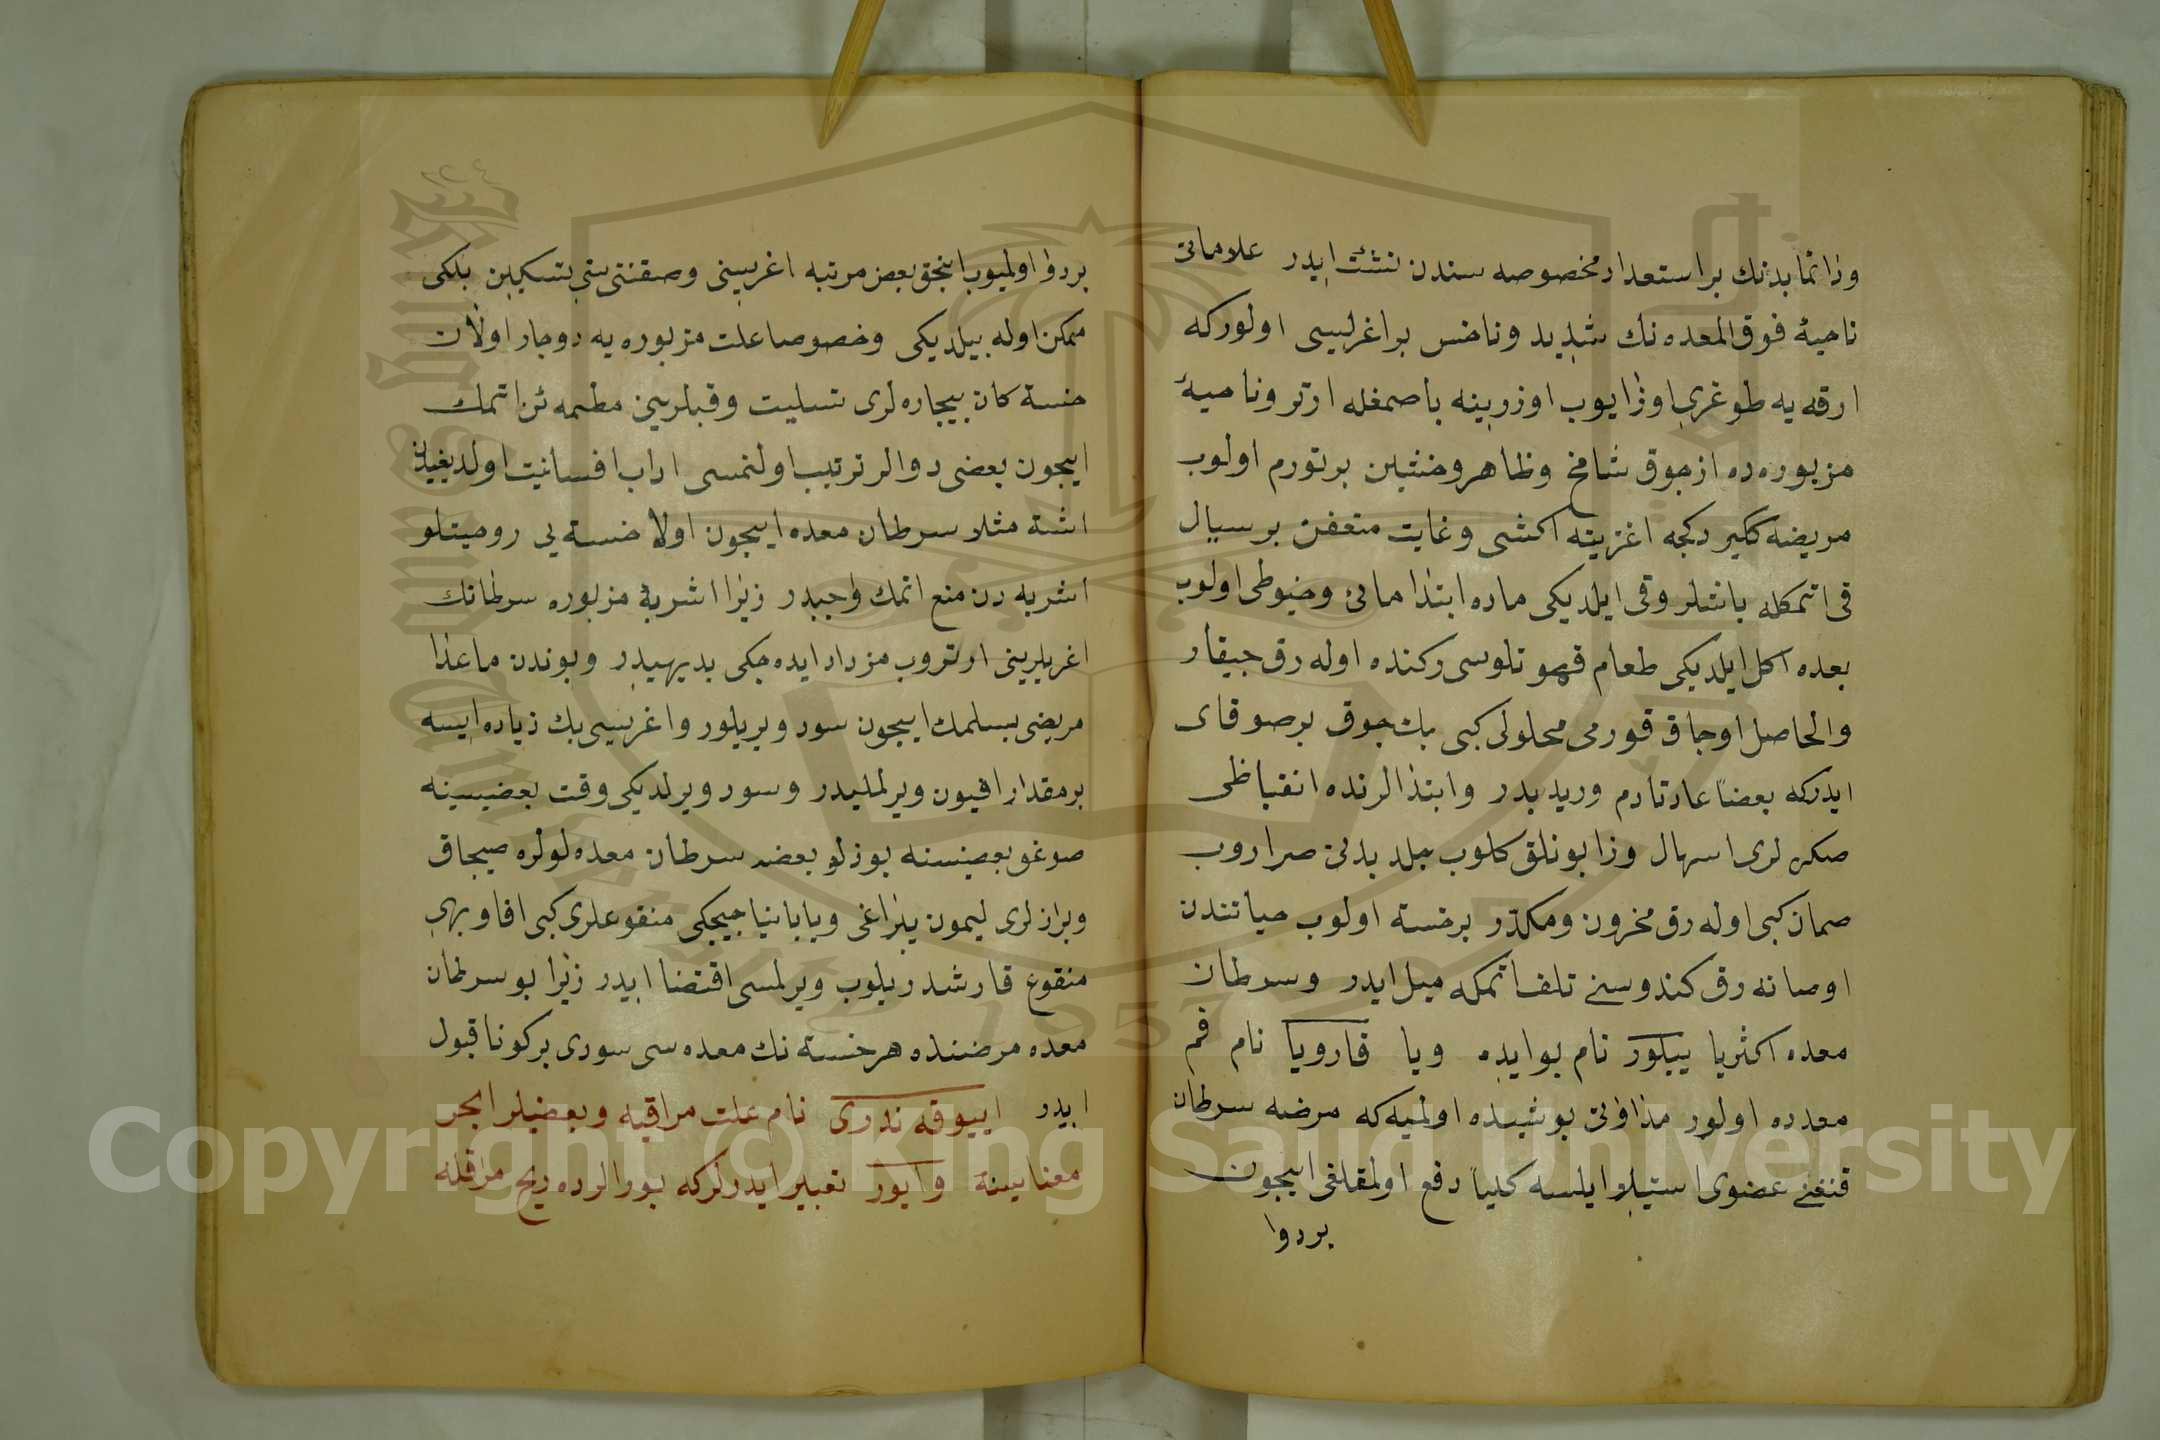 وذاتما بدنك بر استعداد مخصوصه سندن نشئت ايدر علاماتى
ناحيۀ فوق المعده نك شديد وناخس بر اغريسى اولوركه
ارقه يه طوغرى اوزايوب اوزرينه باصمغله ارتر وناحيۀ
مزبوره ده از جوق شامخ وظاهر وخشين بر تورم اولوب
مريضه ككيردكجه اغزينه اكشى وغايت متعفن بر سيال
قى اتمكله باشلر وقى ايلديكى ماده ابتدا مائى وخيوطى اولوب
بعده اكل ايلديكى طعام قهوه تلوسى رنكنده اوله رق جيقار
والحاصل اوجاق قورمى محلولى كبى بك جوق بر صو قاى
ايدركه بعضاً عادتا دم وريديدر وابتدالرنده انقباظى
صكره لرى اسهال وزابونلق كلوب جلد بدنى صراروب
صمان كبى اوله رق مخزون ومكدر بر خسته اولوب حياتندن
اوصانه رق كندوسنى تلف اتمكه ميل ايدر وسرطان
معده اكثريا پيلور نام بوابده ويا قارويا نام فم
معدده اولور مداواتى بو شيده اولميه كه مرضه سرطان
قنغى عضوى استيلا ايلسه كلياً دفع اولمقلغى ايجون
بر دوا
بر دوا اولميوب انجق بعض مرتبه اغريسنى وصقنتى سنى تسكين بلكى
ممكن اوله بيلديكى وخصوصا علت مزبوره يه دوجار اولان
خسته كان بيجاره لرى تسليت وقبلرينى مطمئن اتمك
ايجون بعضى دوالر ترتيب اولنمسى اداب افسانيت اولديغيندن
اشته مثلا سرطان معده ايجون اولا خسته يى روحيتلو
اشربه دن منع اتمك واجبدر زيرا اشربۀ مزبوره سرطانك
اغريلرينى ارتروب مزداد ايده جكى بديهيدر وبوندن ماعدا
مريضى بسلمك ايجون سود ويريلور واغريسى بك زياده ايسه
بر مقدار افيون ويرلمليدر وسود ويرلديكى وقت بعضيسينه
صوغو بعضيسنه بوزلو بعضه سرطان معده لولره صيجاق
وبرازلرى ليمون يپراغى وياباتيا جيجكى منقوعلرى كبى افاويهى
منقوع قارشدريلوب ويرلمسى اقتضا ايدر زيرا بو سرطان
معده مرضنده هر خسته نك معده سى سودى بر كونا قبول
ايدر ايپوقه ندرى نام علت مراقيه وبعضيلر ابخره
معناسينه واپور تعبير ايدرلركه بورالرده ريح مراقله